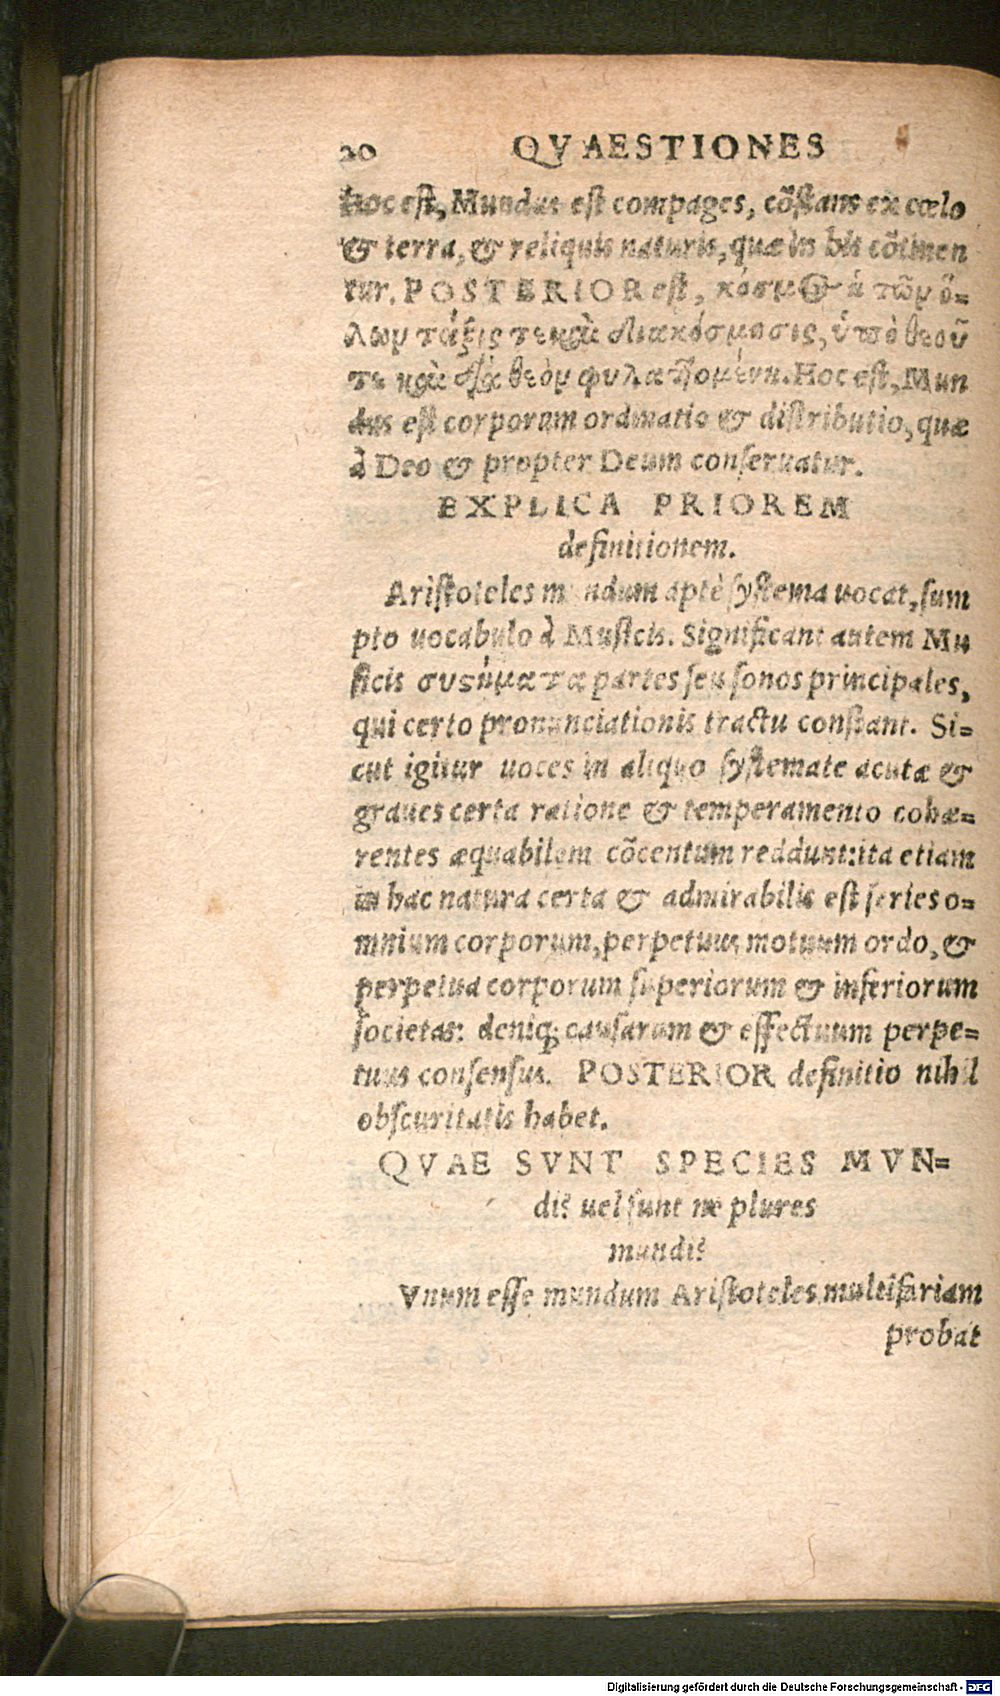 20 QVAESTIONES
Hoc est, Mundus est compages, cõstans ex cœlo
& terra, & reliquis naturis, quæ in his cõtinen
tur. POSTERIOR est, κόσμος ἡ τῶν ὅ=
λων τάξις τε καὶ διακόσμησις, ὑπὸ θεοῦ
τε καὶ διὰ θεὸν φυλαττομένη. Hoc est, Mun
dus est corporum ordinatio & distributio, quæ
à Deo & propter Deum conseruatur.
EXPLICA PRIOREM
definitionem.
Aristoteles mundum aptè systema uocat, sum
pto uocabulo à Musicis. Significant autem Mu
sicis συστήματα partes seu sonos principales,
qui certo pronunciationis tractu constant. Si=
cut igitur uoces in aliquo systemate acutæ &
graues certa ratione & temperamento cohæ=
rentes æquabilem cõcentum reddunt: ita etiam
in hac natura certa & admirabilis est series o=
mnium corporum, perpetuus motuum ordo, &
perpetua corporum superiorum & inferiorum
societas: deniq; causarum & effectuum perpe=
tuus consensus. POSTERIOR definitio nihil
obscuritatis habet.
QVAE SVNT SPECIES MVN=
di? uel sunt ne plures
mundi?
Vnum esse mundum Aristoteles multifariam
probat
Digitalisierung gefördert durch die Deutsche Forschungsgemeinschaft - DFG